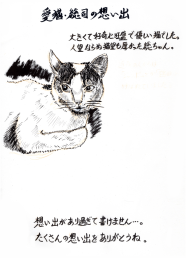 愛猫・総司の想い出
大きくて好奇心旺盛で優しい猫でした。
人望ならぬ猫望も厚かった総ちゃん。
想い出があり過ぎて書けません…。
たくさんの想い出をありがとうね。